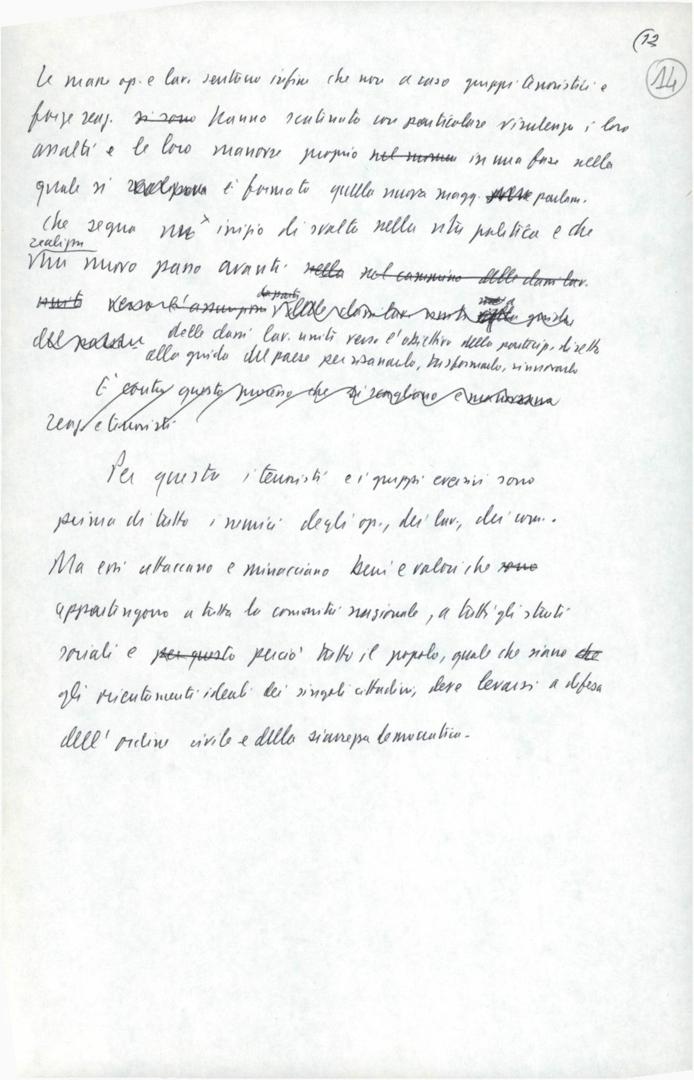 (13
14
Le masse op. e lav. sentono infine che non a caso gruppi terroristici e
forze reaz. si sono hanno scatenato con particolare virulenza i loro
assalti e le loro manovre proprio nel momen in una fase nella
quale si è formata quella nuova magg. parlam.
che segna un inizio di svolta nella vita politica e che
realizza
un nuovo passo avanti nella nel cammino delle classi lav.
unite verso l'assunzione
da parte delle classi lav. unite guida
del paese delle classi lav. unite verso l'obiettivo della partecip. diretta
alla guida del paese per risanarlo, trasformarlo, rinnovarlo
È contro questo processo che si scagliano e
reaz e terroristi
Per questo i terroristi e i gruppi eversivi sono
prima di tutto i nemici degli op., dei lav., dei com..
Ma essi attaccano e minacciano beni e valori che sono
appartengono a tutta la comunità nazionale, a tutti gli strati
sociali e per questo perciò tutto il popolo, quale che siano che
gli orientamenti ideali dei singoli cittadini, deve levarsi a difesa
dell'ordine civile e della sicurezza democratica.